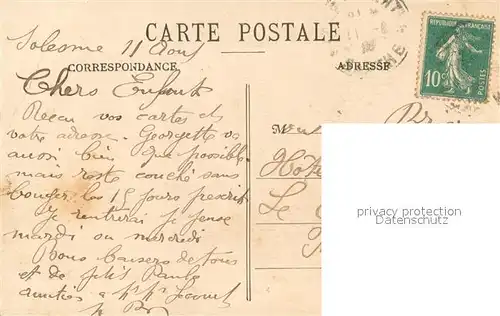 CARTE POSTALE
RÉPUBLIQUE FRANÇAISE
10c
POSTES
Solesme 11 Aout
CORRESPONDANCE
ADRESSE
Chers Enfants
Recu vos cartes et
votre adresse. Georgette va
aussi bien que possible
mais reste couché sans
bouger les 15 jours prescrit
Je rentrerai je pense
mardi ou mercredi
Bons baisers de tous
et de petit Paulo
amitiés a
Hôte
Le
privacy protection
Datenschutz